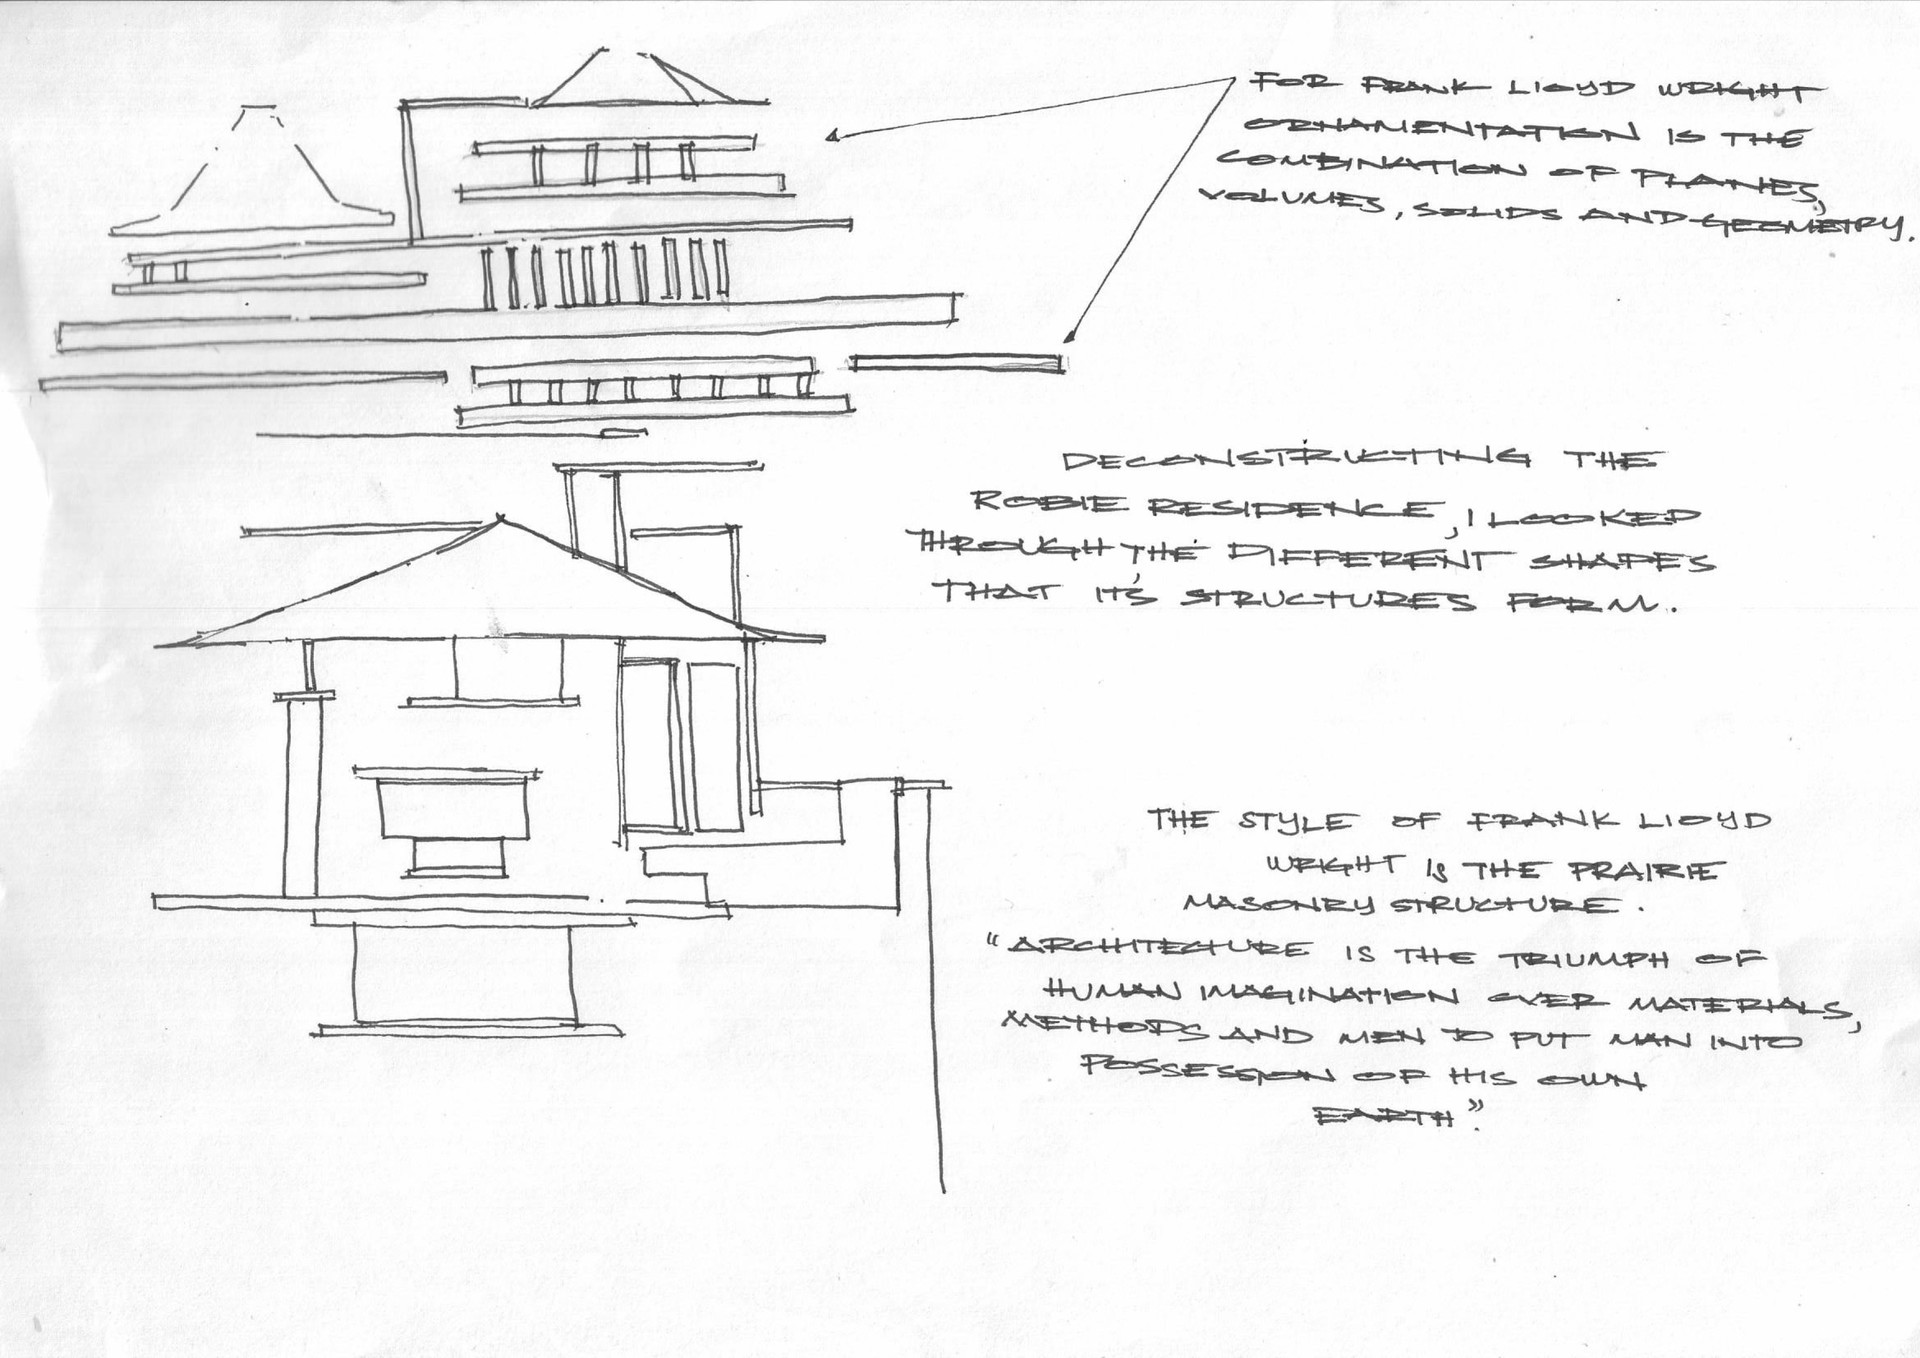 FOR FRANK LLOYD WRIGHT
ORNAMENTATION IS THE
COMBINATION OF PLANES,
VOLUMES, SOLIDS AND GEOMETRY.
DECONSTRUCTING THE
ROBIE RESIDENCE, I LOOKED
THROUGH THE DIFFERENT SHAPES
THAT IT'S STRUCTURES FORM.
THE STYLE OF FRANK LLOYD
WRIGHT IS THE PRAIRIE
MASONRY STRUCTURE.
"ARCHITECTURE IS THE TRIUMPH OF
HUMAN IMAGINATION OVER MATERIALS,
METHODS AND MEN TO PUT MAN INTO
POSSESSION OF HIS OWN
EARTH".